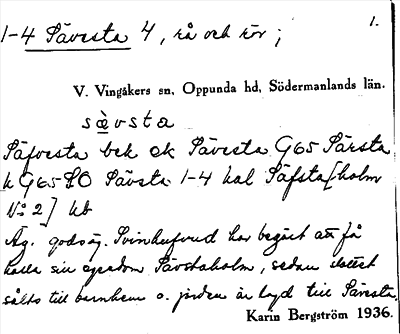 1.
1-4 Sävsta 4, rå och rör;
V. Vingåkers sn, Oppunda hd, Södermanlands län.
sävsta
Säfvesta bek ek Sävesta G65 Särsta
k G65 SO Sävsta 1-4 kal Säfsta[holm
N:o 2] kb
Äg. godsäg. Svinhufvud har begärt att få
kalla sin egendom Sävstaholm, sedan slottet
sålts till barnhem o. jorden är lagd till Sävsta.
Karin Bergström 1936.